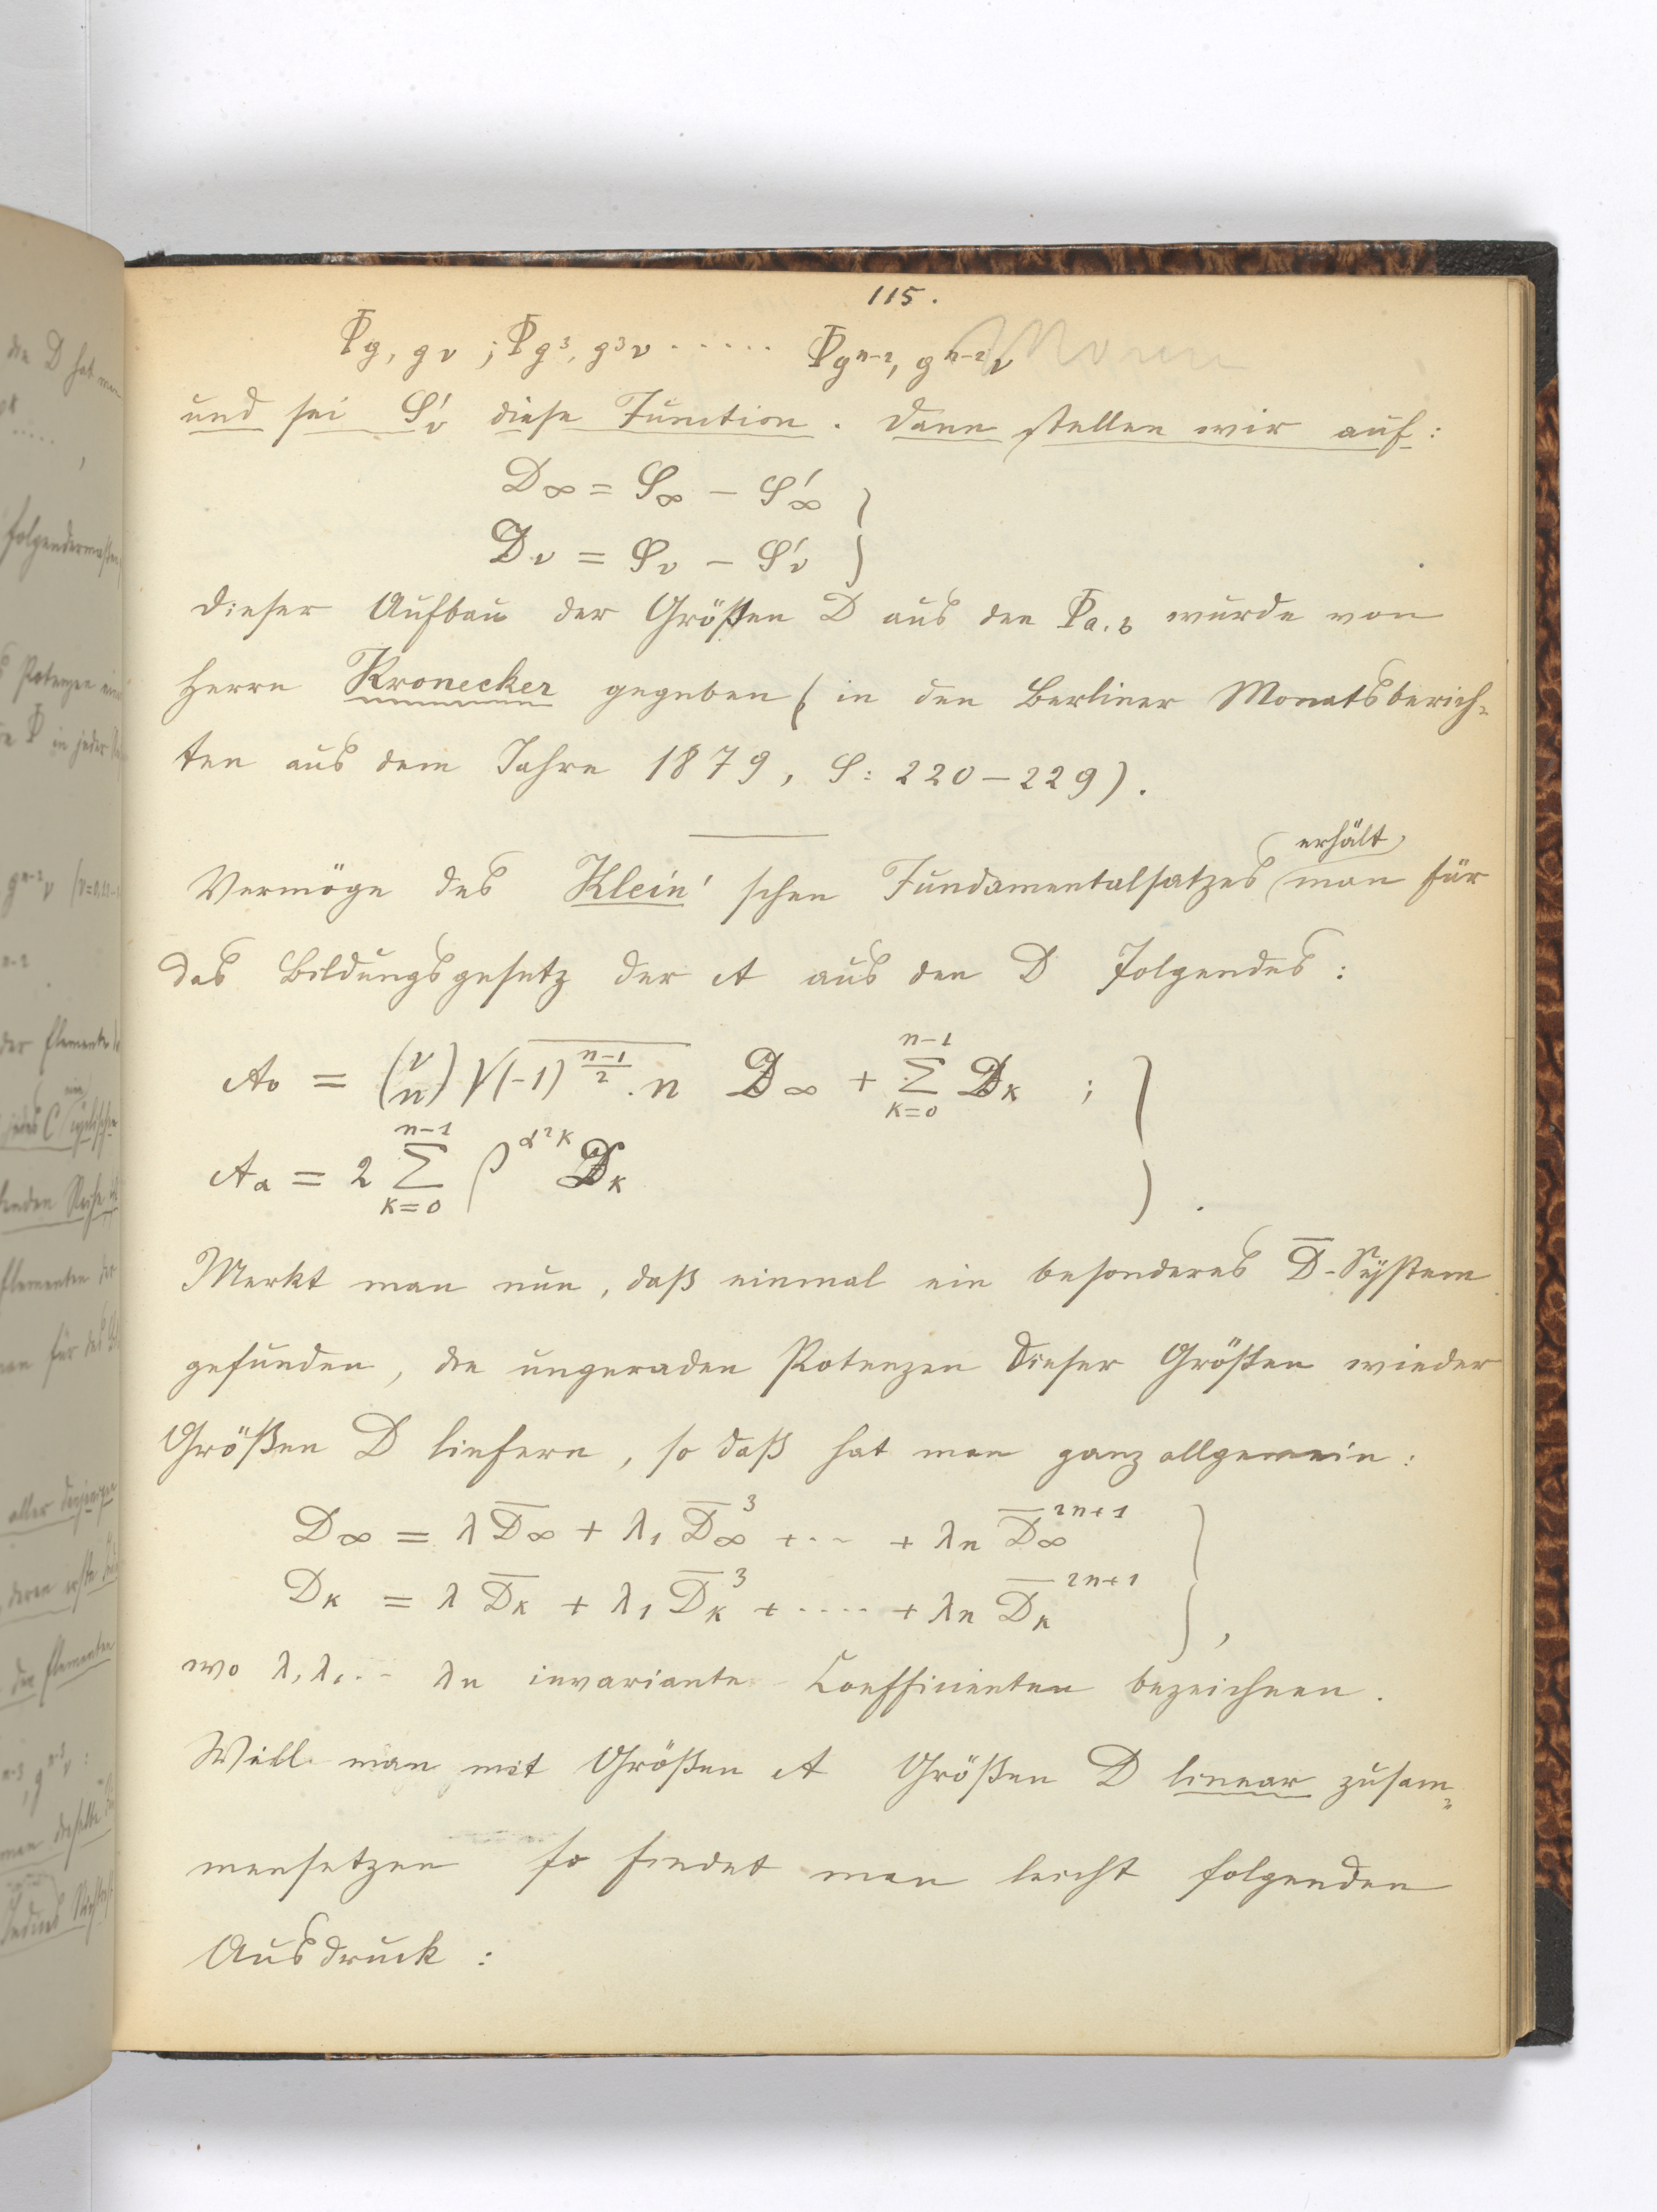 115.
Φg, gν ; Φg³, g³ν ······ Φgⁿ⁻², gⁿ⁻²ν
und sei S'ν diese Function. Dann stellen wir auf:
D∞ = S∞ − S'∞
Dν = Sν − S'ν }
Dieser Aufbau der Größen D aus den Φa.b wurde von
Herrn Kronecker gegeben (in den Berliner Monatsberich=
ten aus dem Jahre 1879, S: 220–229).
erhält
Vermöge des Klein'schen Fundamentalsatzes man für
das Bildungsgesetz der A aus den D folgendes:
A₀ = (ν/n) √((-1)^((n-1)/2) . n) D∞ + Σ_{k=0}^{n-1} D_k ;
Aα = 2 Σ_{k=0}^{n-1} ρ^(α²k) D_k } .
Merkt man nun, daß einmal ein besonderes D̅-System
gefunden, die ungeraden Potenzen dieser Größen wieder
Größen D liefern, so daß hat man ganz allgemein:
D∞ = λ D̅∞ + λ₁ D̅∞³ + ·· + λn D̅∞²ⁿ⁺¹
D_k = λ D̅_k + λ₁ D̅_k³ + ···· + λn D̅_k²ⁿ⁺¹ } ,
wo λ, λ₁ ·· λn invariante Coefficienten bezeichnen.
Will man mit Größen A Größen D linear zusam=
mensetzen so findet man leicht folgenden
Ausdruck :